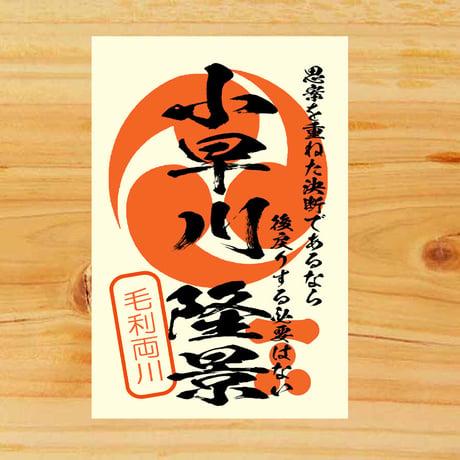 思案を重ねた決断であるなら
後戻りする必要はない
小早川
隆景
毛利両川